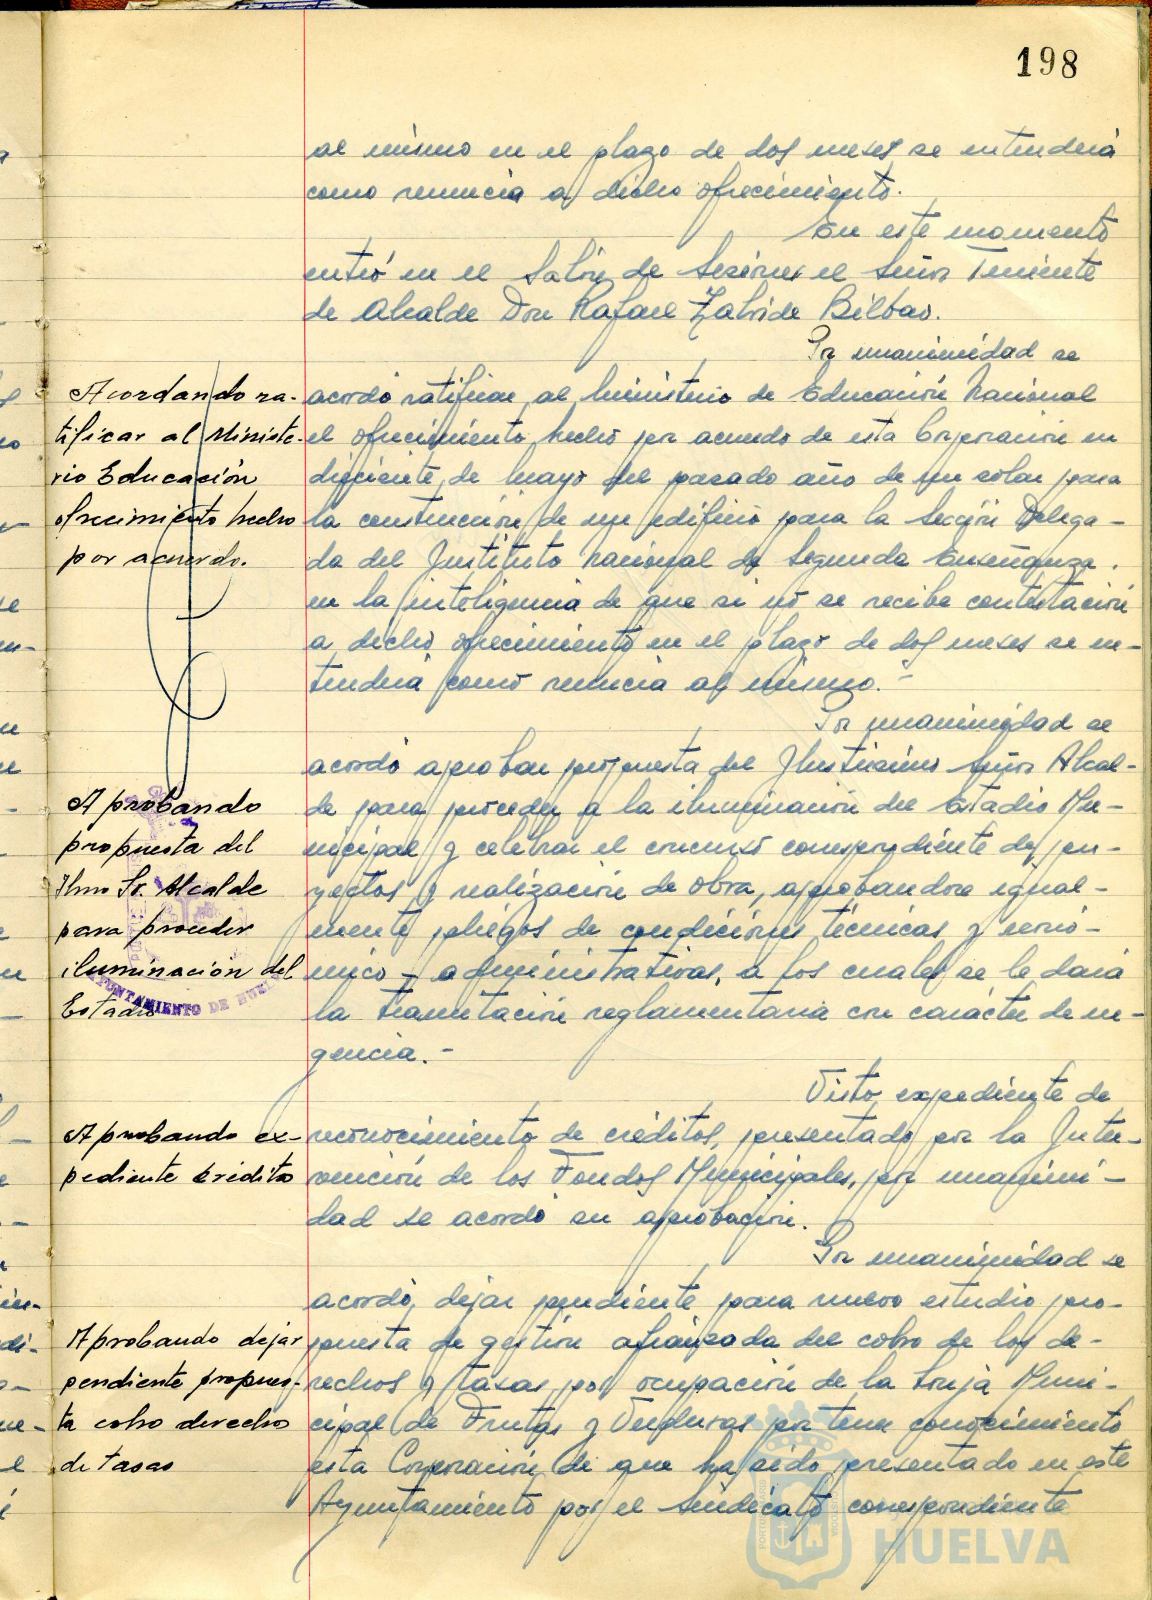 198
al mismo en el plazo de dos meses se entenderá
como renuncia a dicho ofrecimiento.
En este momento
entró en el Salón de Sesiones el Señor Teniente
de Alcalde Don Rafael Zalvide Bilbao.
Por unanimidad se
Acordando ra-
tificar al Ministe-
rio Educación
ofrecimiento hecho
por acuerdo.
acordó ratificar al Ministerio de Educación Nacional
el ofrecimiento hecho por acuerdo de esta Corporación en
diecisiete de Mayo del pasado año de un solar para
la construcción de un edificio para la Sección Delega-
da del Instituto Nacional de Segunda Enseñanza.
en la inteligencia de que si no se recibe contestación
a dicho ofrecimiento en el plazo de dos meses se en-
tenderá como renuncia al mismo.-
Por unanimidad se
Aprobando
propuesta del
Ilmo Sr. Alcalde
para proceder
iluminación del
Estadio
acordó aprobar propuesta del Ilustrísimo Señor Alcal-
de para proceder a la iluminación del Estadio Mu-
nicipal y celebrar el concurso correspondiente de pro-
yectos y realización de obra, aprobandose igual-
mente pliegos de condiciones técnicas y econó-
mico-administrativas, a los cuales se le dará
la tramitación reglamentaria con carácter de ur-
gencia.-
AYUNTAMIENTO DE HUELVA
Visto expediente de
Aprobando ex-
pediente crédito
reconocimiento de créditos, presentado por la Inter-
vención de los Fondos Municipales, por unanimi-
dad se acordó su aprobación.
Por unanimidad se
Aprobando dejar
pendiente propues-
ta cobro derecho
de tasas
acordó, dejar pendiente para nuevo estudio pro-
puesta de gestión afianzada del cobro de los de-
rechos y tasas por ocupación de la Lonja Muni-
cipal de Frutas y Verduras por tener conocimiento
esta Corporación de que ha sido presentado en este
Ayuntamiento por el Sindicato correspondiente
HUELVA